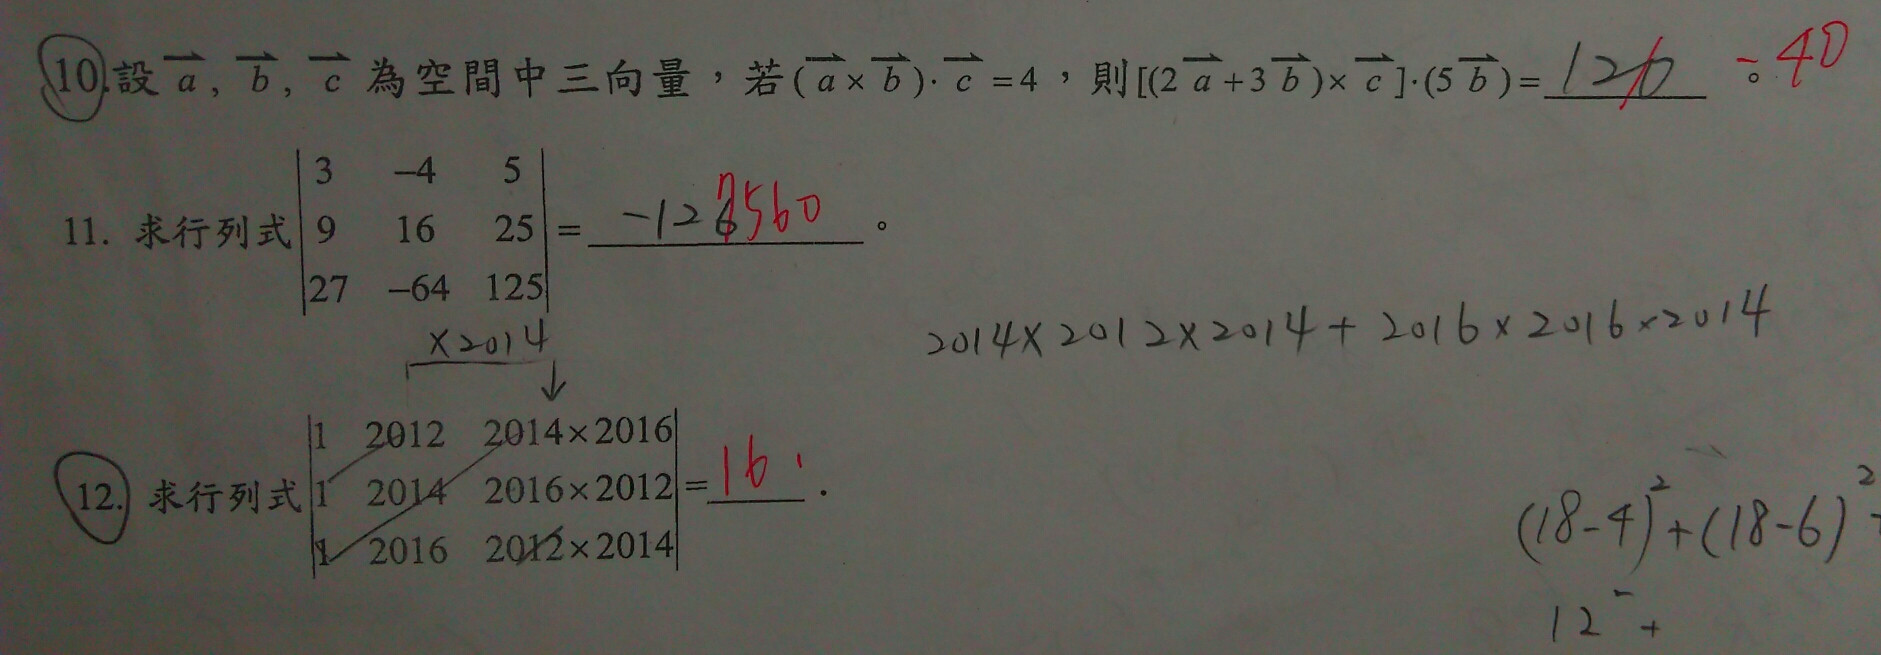 10. 設 a, b, c 為空間中三向量，若(a×b)·c=4，則[(2a+3b)×c]·(5b)=120。 -40
11. 求行列式
3 -4 5
9 16 25
27 -64 125
= -12 7560。
×2014
2014×2012×2014+2016×2016×2014
12. 求行列式
1 2012 2014×2016
1 2014 2016×2012
1 2016 2012×2014
=16.
(18-4)²+(18-6)²
12 +